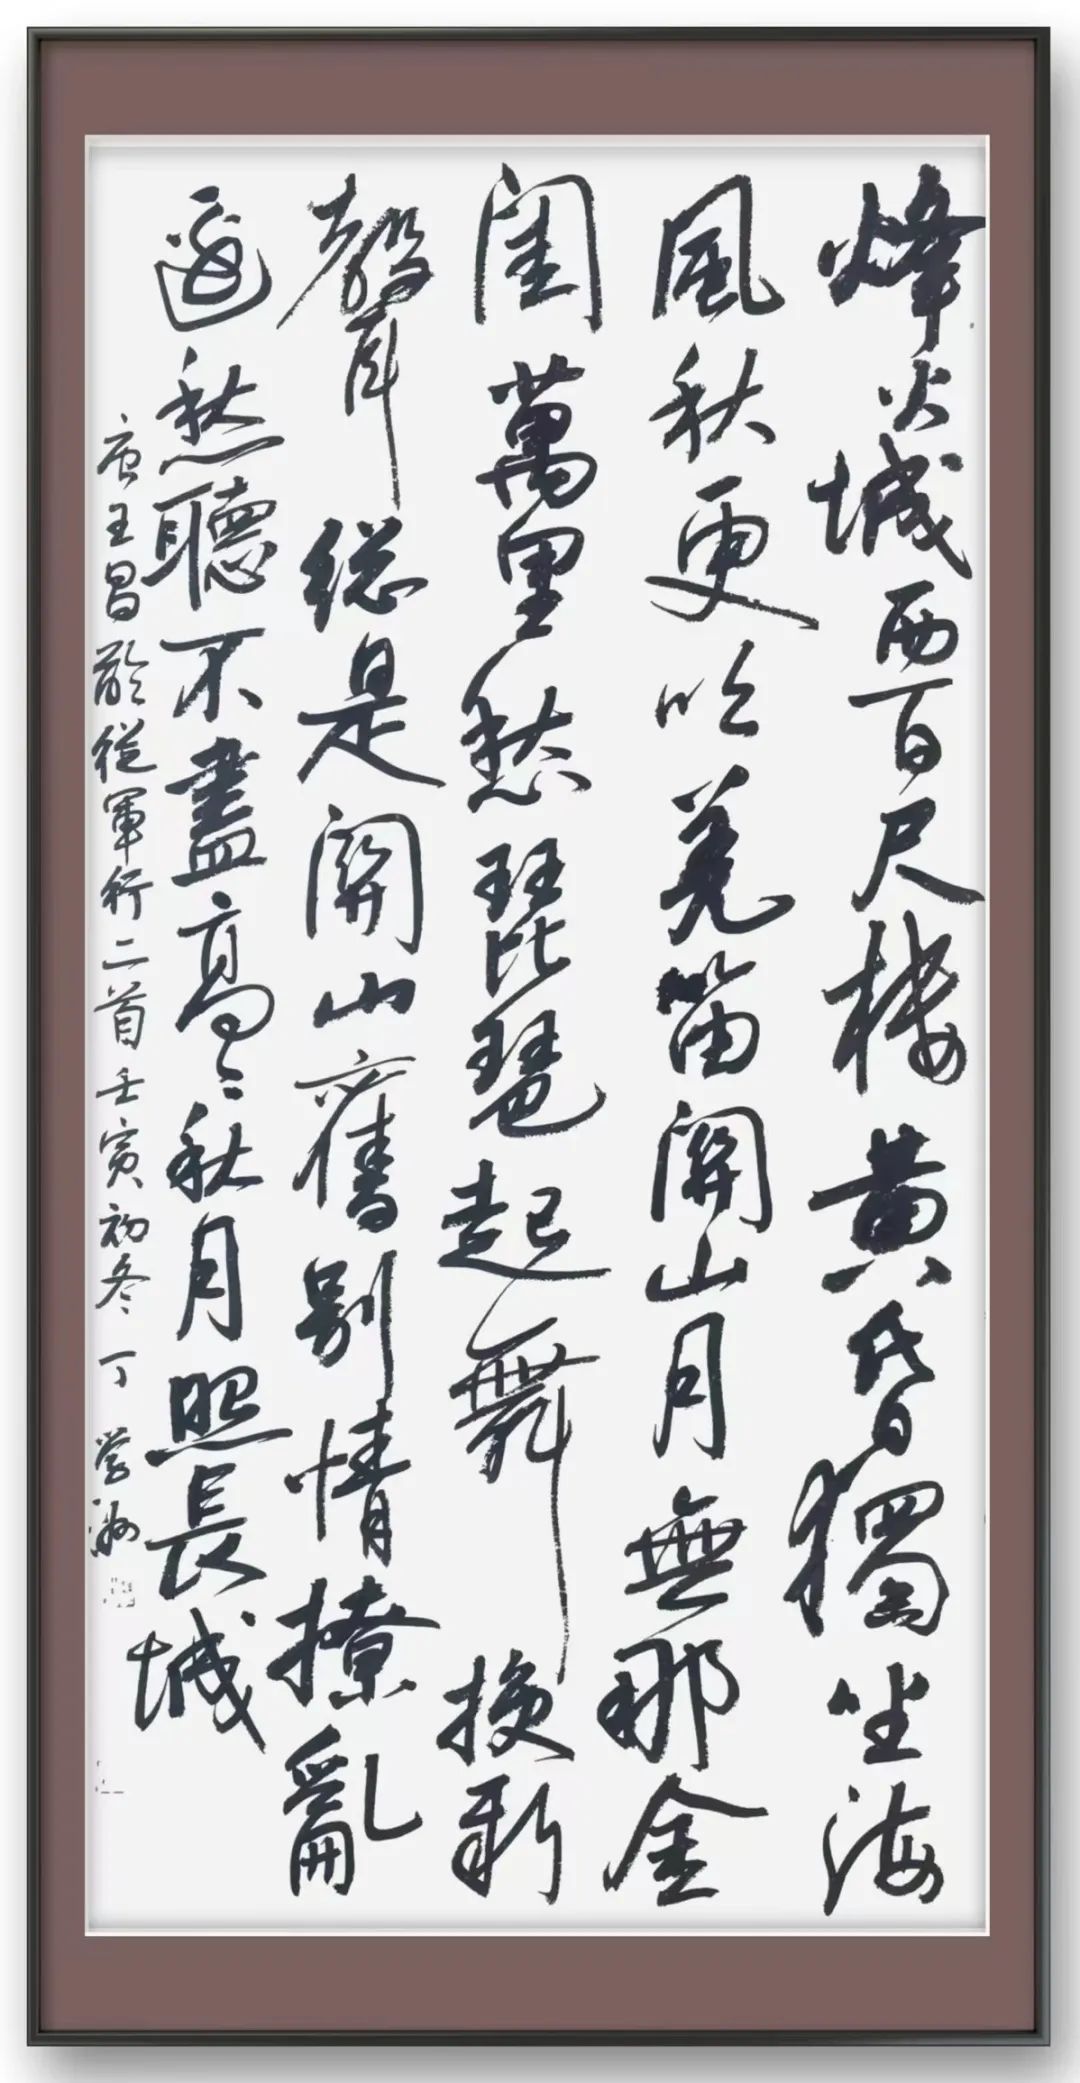 烽火城西百尺楼黄昏獨坐海
風秋更吹羌笛關山月無那金
閨萬里愁琵琶起舞換新
聲總是關山舊别情撩亂
邊愁聽不盡高々秋月照長城
唐王昌齡從軍行二首壬寅初冬丁學